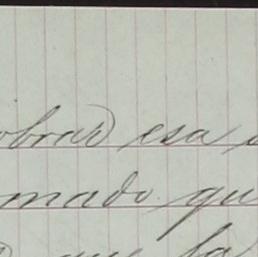 obrar esa
mado que
que la